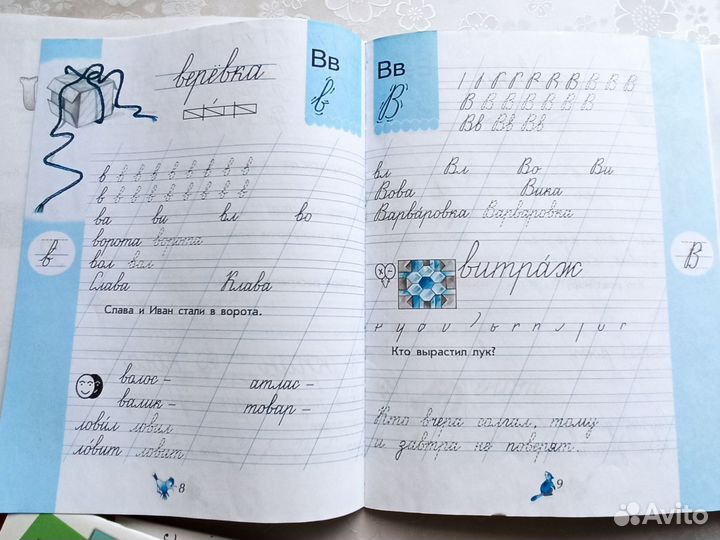 верёвка
Вв
в
в в в в в в в в в
в в в в в в в в в
ва ви вл во
ворота ворота
вол вол
Слава Клава
Слава и Иван стали в ворота.
волос - атлас -
валик - товар -
лови́л ловил
ло́вит ловит
8
в
Вв
В
В В В В В В В
Вв Вв Вв
вл Вл Во Ви
Вова Вика
Варва́ровка Варваровка
витра́ж
Кто вырастил лук?
Кто вчера солгал, тому
и завтра не поверят.
9
В
Avito